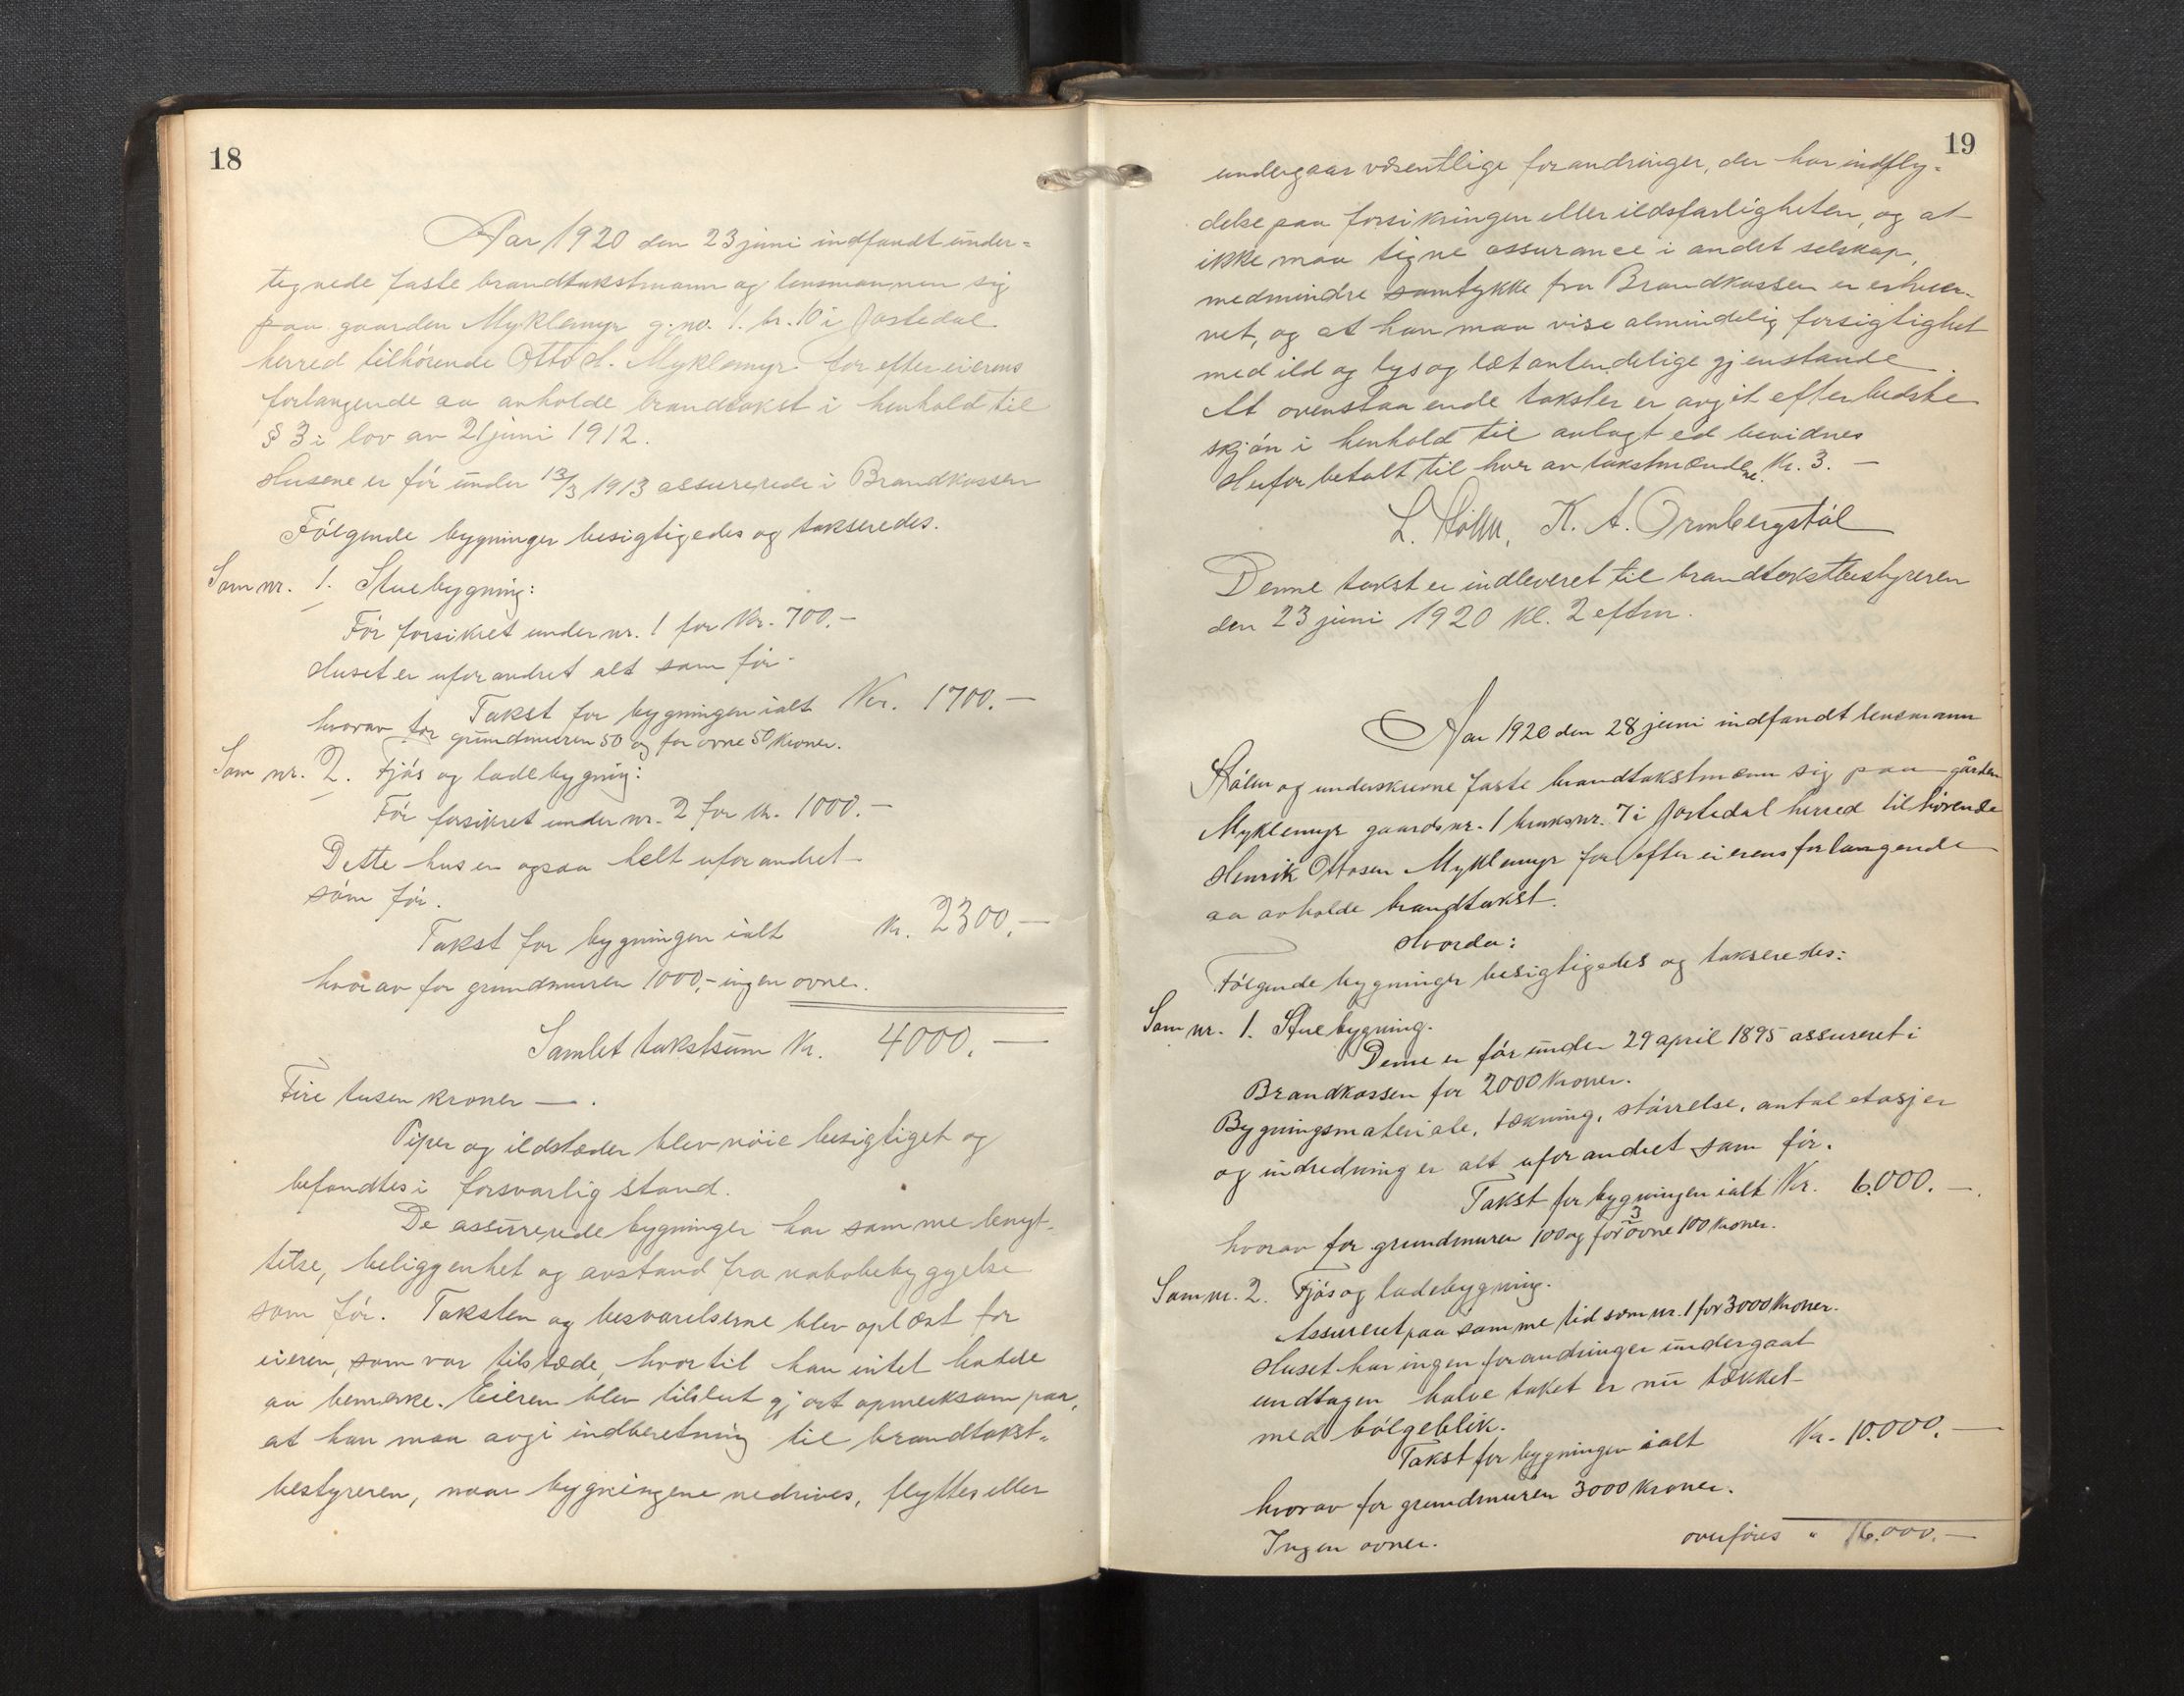 18
Aar 1920 den 23 juni indfandt under-
tegnede faste brandtakstmann og lensmannen sig
paa gaarden Myklemyr g.no. 1. br. 10 i Jostedal
herred tilhörende Otto H. Myklemyr for efter eierens
forlangende aa avholde brandtakst i henhold til
§ 3 i lov av 21 juni 1912.
Husene er för under 13/3 1913 assurerede i Brandkassen
Fölgende bygninger besigtigedes og takseredes.
Som nr. 1. Stuebygning:
För forsikret under nr. 1 for Kr. 700.-
Huset er uforandret alt som för.
Takst for bygningen ialt Kr. 1700.-
hvorav for grundmuren 50 og for ovne 50 Kroner.
Som nr. 2. Fjös og ladebygning:
För forsikret under nr. 2 for Kr. 1000.-
Dette hus er ogsaa helt uforandret
som för.
Takst for bygningen ialt Kr. 2300.-
hvorav for grundmuren 1000,- ingen ovner.
Samlet takstsum Kr. 4000.-
Fire tusen kroner -.
Piper og ildsteder blev nöie besigtiget og
befandtes i forsvarlig stand.
De assurerede bygninger har samme benyt-
telse, beliggenhet og avstand fra nabobebyggelse
som för. Taksten og besvarelserne blev oplæst for
eieren, som var tilstæde, hvortil han intet hadde
aa bemerke. Eieren blev tilslut gjort opmerksom paa,
at han maa avgi indberetning til brandtakst-
bestyreren, naar bygningene nedrives, flyttes eller
19
undergaar væsentlige forandringer, der har indfly-
delse paa forsikringen eller ildsfarligheten, og at
ikke maa tegne assurance i andet selskap,
medmindre samtykke fra Brandkassen er erhver-
vet, og at han maa vise almindelig forsigtighet
med ild og lys og letantendelige gjenstande.
At ovenstaaende takster er avgit efter bedste
skjön i henhold til avlagt ed bevidnes
Herfor betalt til hver av takstmændene Kr. 3.-
L. Hölm, K. A. Ormbergstöl
Denne takst er indleveret til brandtakstbestyreren
den 23 juni 1920 kl. 2 eftm.
Aar 1920 den 28 juni indfandt lensmann
Hölm og underskrevne faste brandtakstmann sig paa gården
Myklemyr gaardsnr. 1 bruksnr. 7 i Jostedal herred tilhörende
Henrik Ottosen Myklemyr for efter eierens forlangende
aa avholde brandtakst.
Hvorda:
Fölgende bygninger besigtigedes og takseredes:
Som nr. 1. Stuebygning.
Denne er för under 29 april 1895 assureret i
Brandkassen for 2000 Kroner.
Bygningsmateriale, tækning, störrelse, antal etasjer
og indredning er alt uforandret som för.
Takst for bygningen ialt Kr. 6.000.-.
hvorav for grundmuren 100 og for 3 ovne 100 Kroner.
Som nr. 2. Fjös og ladebygning.
Assureret paa samme tid som nr. 1 for 3000 Kroner.
Huset har ingen forandringer undergaat
undtagen halve taket er nu tækket
med bölgeblik.
Takst for bygningen ialt Kr. 10.000.-
hvorav for grundmuren 3000 Kroner.
Ingen ovner. overföres " 16.000.-